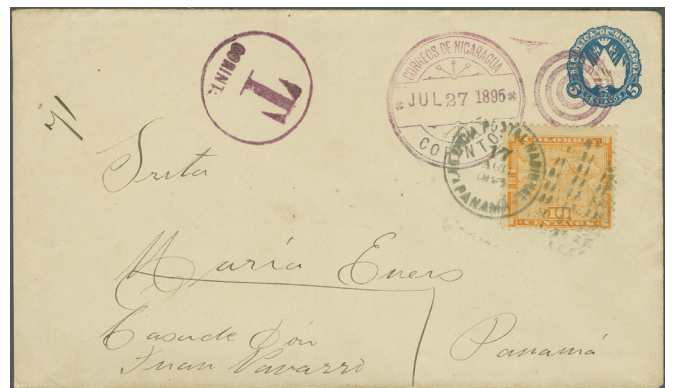 CORINTO
T
CORREOS DE NICARAGUA
* JUL 27 1895 *
CORINTO
REPUBLICA DE NICARAGUA
5 CENTAVOS 5
AGENCIA POSTAL NACIONAL
17
PANAMA
COLOMBIA
10 10
CENTAVOS
Srita
María
Casa de Don
Juan Navarro
Panamá